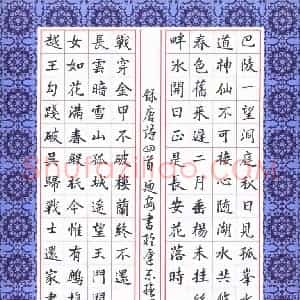 巴陵一望洞庭秋日見孤峯水
道神仙不可接心隨湖水共悠
春色舊來遲二月垂楊未挂絲
畔冰開日正是長安花落時
錄唐詩四首
戰穿金甲不破樓蘭終不還
長雲暗雪山孤城遥望玉門關
女如花滿春殿秖今惟有鷓
越王勾踐破吳歸戰士還家盡